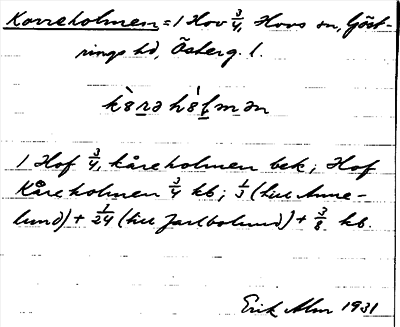 Korreholmen = 1 Hov 3/4, Hovs sn, Göst-
rings hd, Österg. l.
kòrə hól̀mən
1 Hof 3/4, kåreholmen bek; Hof
Kåreholmen 3/4 kb; 1/3 (till Anne-
lund) + 1/24 (till Jarlbolund) + 3/8 kb.
Erik Alm 1931